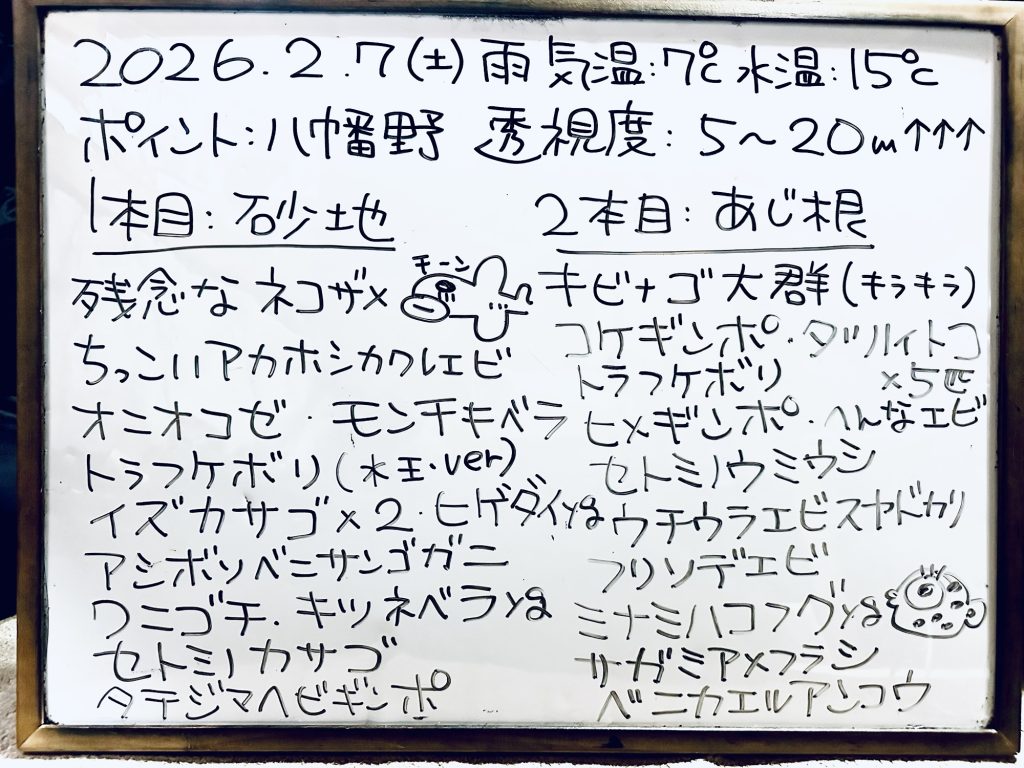 2026.2.7(土) 雨 気温:7℃ 水温:15℃
ポイント:八幡野 透視度:5〜20m↑↑↑
1本目:砂地
残念なネコザメ
チーン
ちっこいアカホシカクレエビ
オニオコゼ・モンチキベラ
トラフケボリ(水玉・ver)
イズカサゴ×2・ヒゲダイyg
アシボソベニサンゴガニ
ワニゴチ・キツネベラyg
セトミノカサゴ
タテジマヘビギンポ
2本目:あじ根
キビナゴ大群(キラキラ)
コケギンポ・タツノイトコ
トラフケボリ ×5匹
ヒメギンポ・へんなエビ
セトミノウミウシ
ウチウラエビスヤドカリ
フリソデエビ
ミナミハコフグyg
サガミアメフラシ
ベニカエルアンコウ